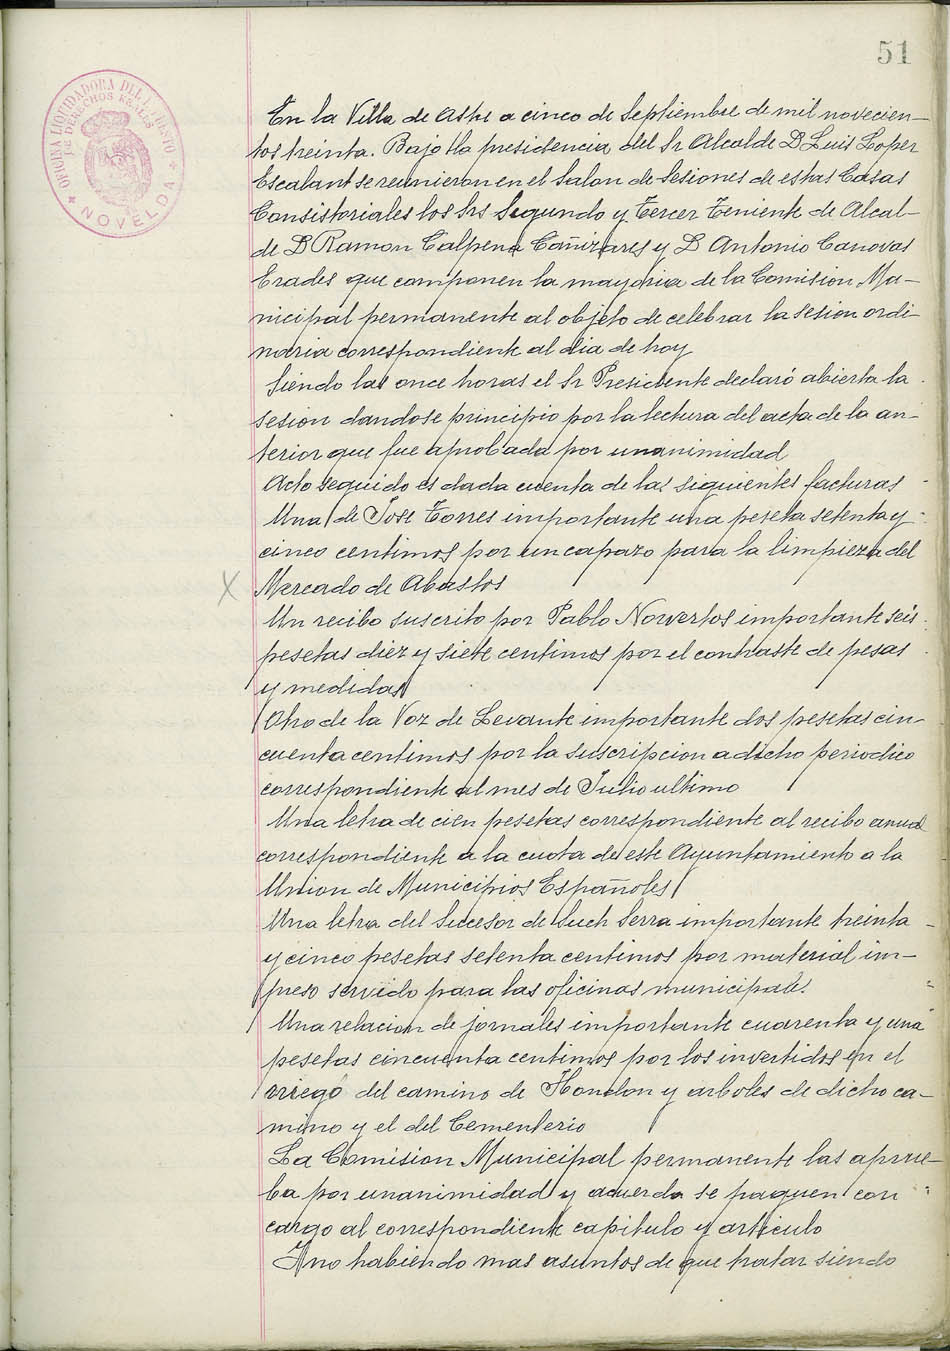 51
OFICINA LIQUIDADORA DEL IMPUESTO
DE DERECHOS REALES
NOVELDA
En la Villa de Aspe a cinco de Septiembre de mil novecien-
tos treinta. Bajo la presidencia del Sr Alcalde D Luis Lopez
Escalant se reunieron en el Salon de Sesiones de estas Casas
Consistoriales los Srs Segundo y Tercer Teniente de Alcal-
de D Ramon Calpena Cañizares y D Antonio Canovas
Erades que componen la mayoria de la Comision Mu-
nicipal permanente al objeto de celebrar la sesion ordi-
naria correspondiente al dia de hoy
Siendo las once horas el Sr Presidente declaró abierta la
sesion dandose principio por la lectura del acta de la an-
terior que fue aprobada por unanimidad
Acto seguido es dada cuenta de las siguientes facturas
Una de Jose Torres importante una peseta setenta y
cinco centimos por un capazo para la limpieza del
X Mercado de Abastos
Un recibo suscrito por Pablo importante seis
pesetas diez y siete centimos por el contraste de pesas
y medidas
Otro de la Voz de Levante importante dos pesetas cin-
cuenta centimos por la suscripcion a dicho periodico
correspondiente al mes de Julio ultimo
Una letra de cien pesetas correspondiente al recibo anual
correspondiente a la cuota de este Ayuntamiento a la
Union de Municipios Españoles
Una letra del Sucesor de Such Serra importante treinta
y cinco pesetas setenta centimos por material im-
preso servido para las oficinas municipales.
Una relacion de jornales importante cuarenta y una
pesetas cincuenta centimos por los invertidos en el
riego del camino de Hondon y arboles de dicho ca-
mino y el del Cementerio
La Comision Municipal permanente las aprue-
ba por unanimidad y acuerda se paguen con
cargo al correspondiente capitulo y articulo
Y no habiendo mas asuntos de que tratar siendo